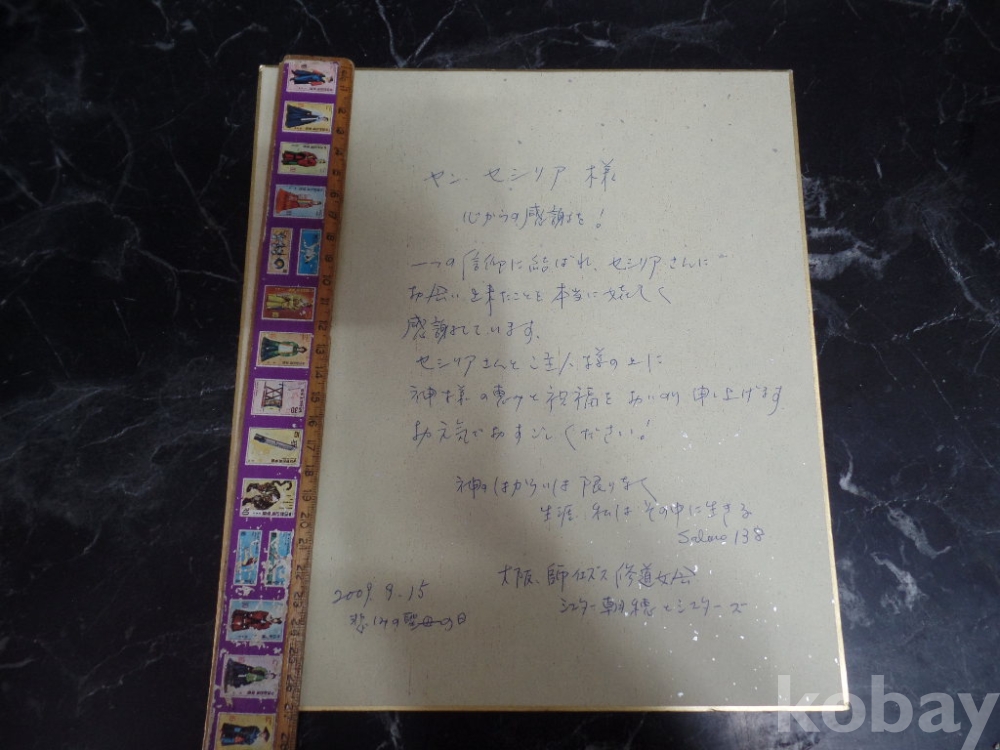 ヤン・セシリア 様
心からの感謝を!
一つの信仰に結ばれ、セシリアさんに
お会い出来たことを本当に嬉しく
感謝しています。
セシリアさんとご主人様の上に
神様の恵みと祝福をおいのり申し上げます
お元気でおすごしください!
神のはからいは限りなく
生涯、私はその中に生きる
Salmo 138
大阪、師イエズス修道女会
シスター朝穂とシスターズ
2009. 9. 15
悲しみの聖母の日
kobay